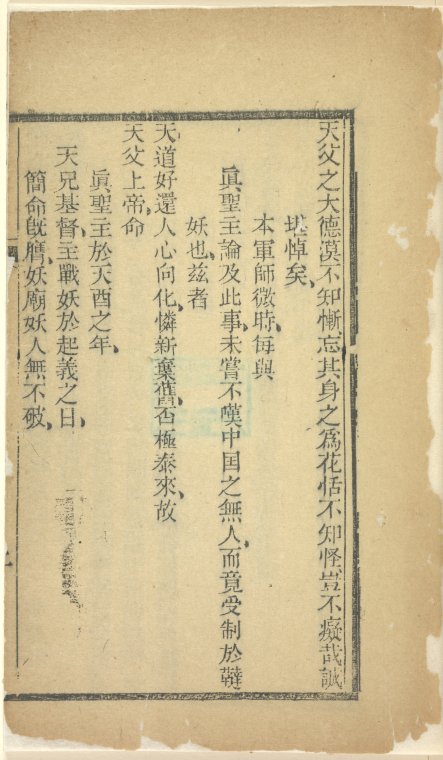 天父之大德漠不知慚忘其身之爲花恬不知怪豈不癡哉誠
堪悼矣、
本軍師微時、每與
眞聖主論及此事、未嘗不嘆中囯之無人、而竟受制於韃
妖也、兹者
天道好還人心向化、憐新棄舊、否極泰來、故
天父上帝命
眞聖主於天酉之年、
天兄基督主戰妖於起義之日、
簡命旣膺、妖廟妖人無不破、